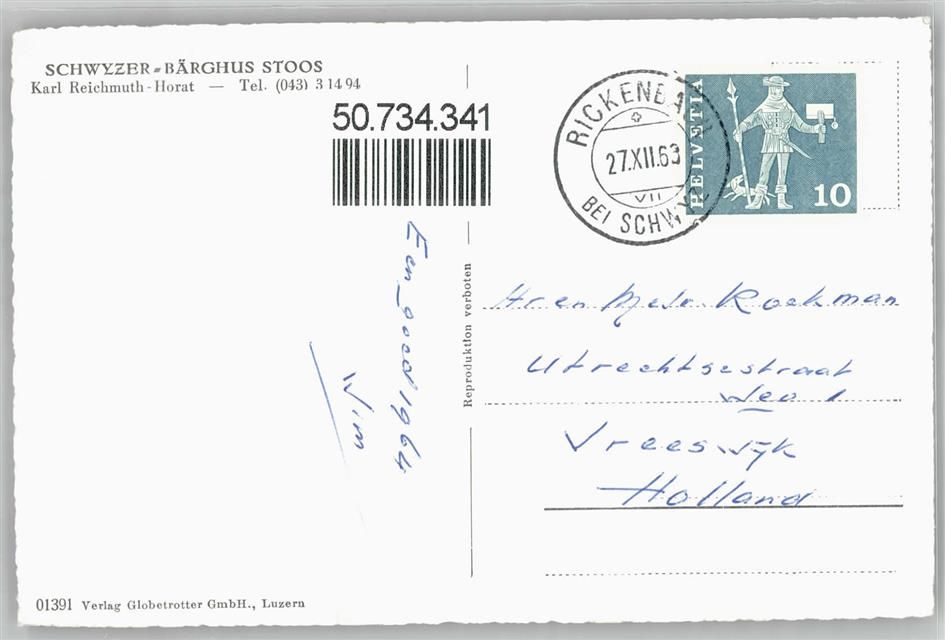 SCHWYZER-BÄRGHUS STOOS
Karl Reichmuth-Horat — Tel. (043) 3 14 94
50.734.341
RICKENBACH
27.XII.63
VII
BEI SCHWYZ
HELVETIA
10
Een goed 1964
Wim
Reproduktion verboten
Hr en Mevr Roekman
Utrechtsestraat
Vreeswijk
Holland
01391 Verlag Globetrotter GmbH., Luzern